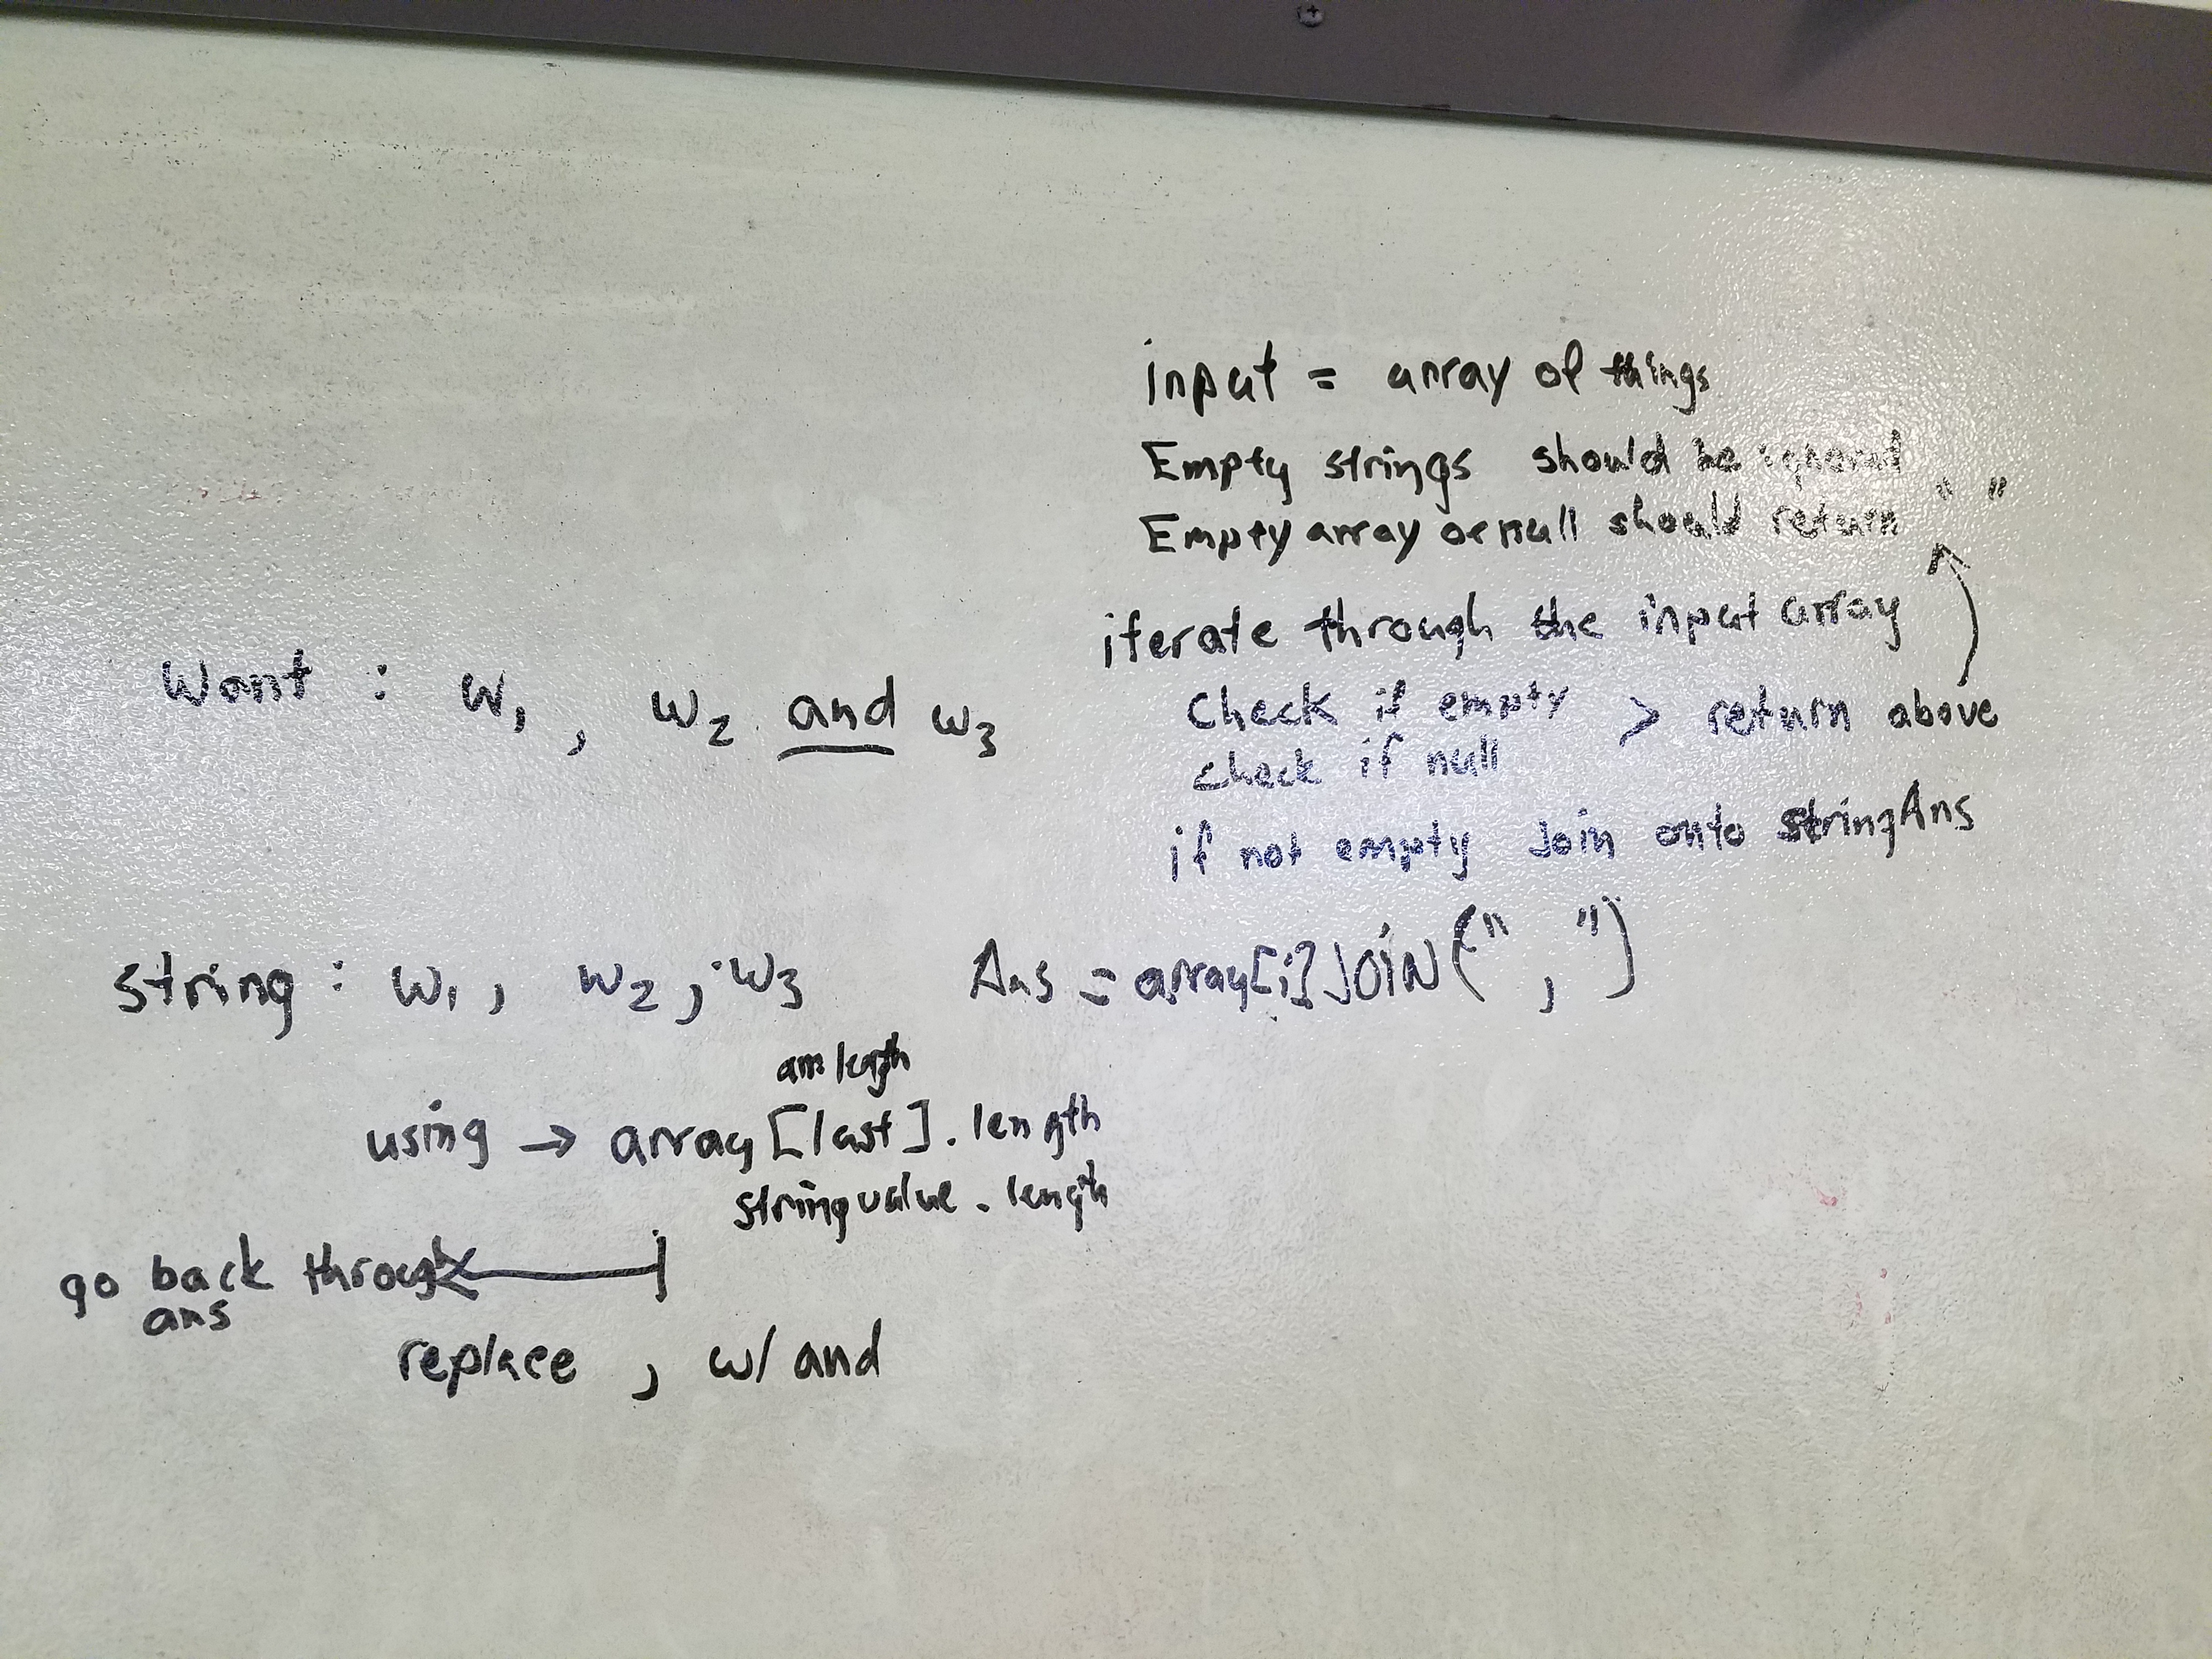 input = array of things
Empty strings should be ignored
Empty array or null should return " "
iterate through the input array
Check if empty > return above
check if null
if not empty Join onto stringAns
Want : W1 , W2 and W3
string : W1 , W2 , W3
Ans = array[i] JOIN(" , ")
length
using → array [last] . length
stringvalue . length
go back through
ans
replace , w/ and